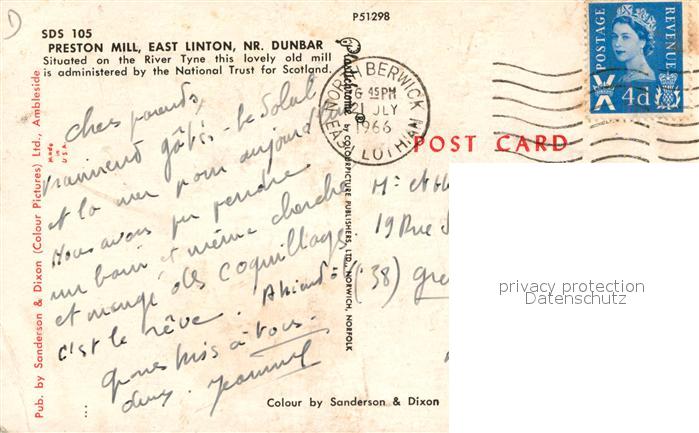 D
P51298
SDS 105
PRESTON MILL, EAST LINTON, NR. DUNBAR
Situated on the River Tyne this lovely old mill
is administered by the National Trust for Scotland.
Pub. by Sanderson & Dixon (Colour Pictures) Ltd., Ambleside
Made
in
U.S.A.
Plastichrome ® by COLOURPICTURE PUBLISHERS, LTD., NORWICH, NORFOLK
NORTH BERWICK
6 45 PM
21 JLY
1966
EAST LOTHIAN
POSTAGE
REVENUE
4d
POST CARD
Chers parents,
vraiment gâtés. Le Soleil
et la mer pour aujourd'hui
Nous avons pu prendre
un bain et même chercher
et mangé des coquillages
c'est le rêve.
à vous.
Mr et
19 Rue
(38) gre
privacy protection
Datenschutz
Colour by Sanderson & Dixon